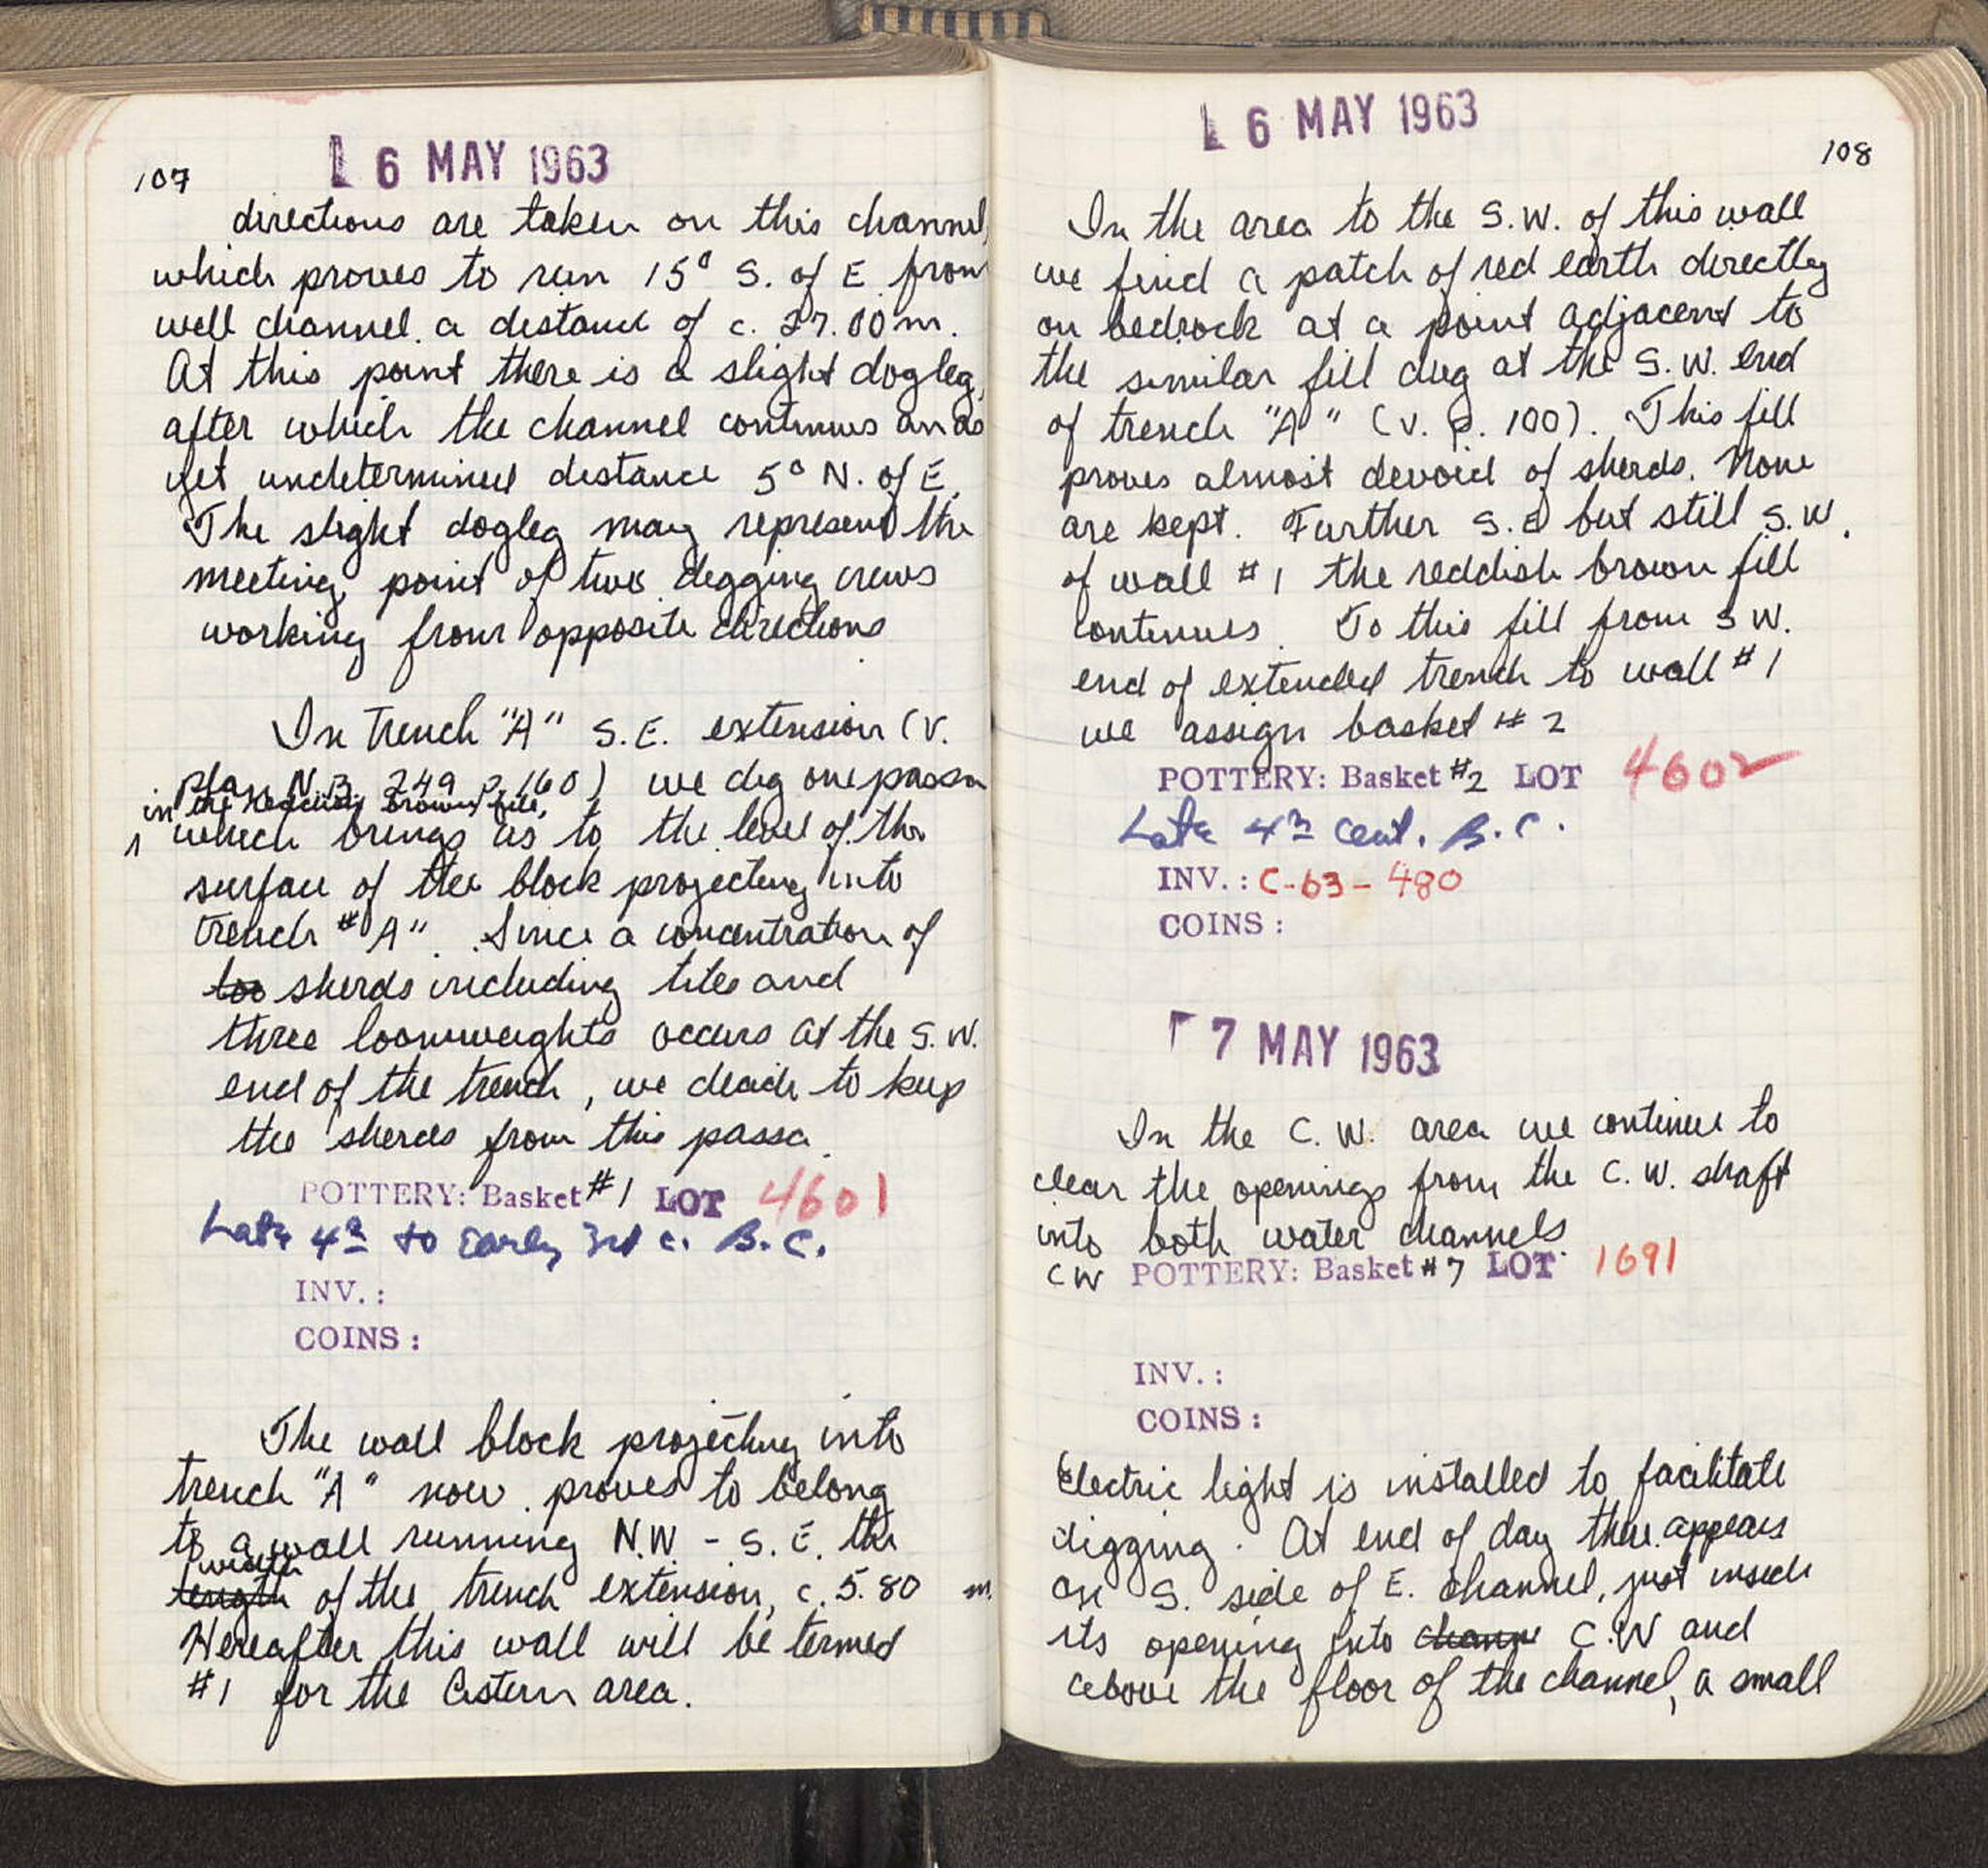 107
6 MAY 1963
directions are taken on this channel,
which proves to run 15° S. of E. from
well channel a distance of c. 27.00 m.
At this point there is a slight dogleg,
after which the channel continues an as
yet undetermined distance 5° N. of E.
The slight dogleg may represent the
meeting point of two digging crews
working from opposite directions.
In trench "A" S.E. extension (v.
plan N.B. 249 p. 160) we dig one passa
in the reddish brown fill,
which brings us to the level of the
surface of the block projecting into
trench "A". Since a concentration of
too sherds including tiles and
three loomweights occurs at the S.W.
end of the trench, we decide to keep
the sherds from this passa.
POTTERY: Basket #1 LOT 4601
Late 4th to early 3rd c. B.C.
INV.:
COINS:
The wall block projecting into
trench "A" now proves to belong
to a wall running N.W. - S.E. the
width
length of the trench extension, c. 5.80 m.
Hereafter this wall will be termed
#1 for the Cistern area.
6 MAY 1963
108
In the area to the S.W. of this wall
we find a patch of red earth directly
on bedrock at a point adjacent to
the similar fill dug at the S.W. end
of trench "A" (v. p. 100). This fill
proves almost devoid of sherds. None
are kept. Further S.E but still S.W.
of wall #1 the reddish brown fill
continues. To this fill from SW.
end of extended trench to wall #1
we assign basket #2
POTTERY: Basket #2 LOT 4602
Late 4th cent. B.C.
INV.: C-63-480
COINS:
7 MAY 1963
In the C.W. area we continue to
clear the openings from the C.W. shaft
into both water channels.
CW POTTERY: Basket #7 LOT 1691
INV.:
COINS:
Electric light is installed to facilitate
digging. At end of day there appears
on S. side of E. channel, just inside
its opening into C.W and
above the floor of the channel, a small